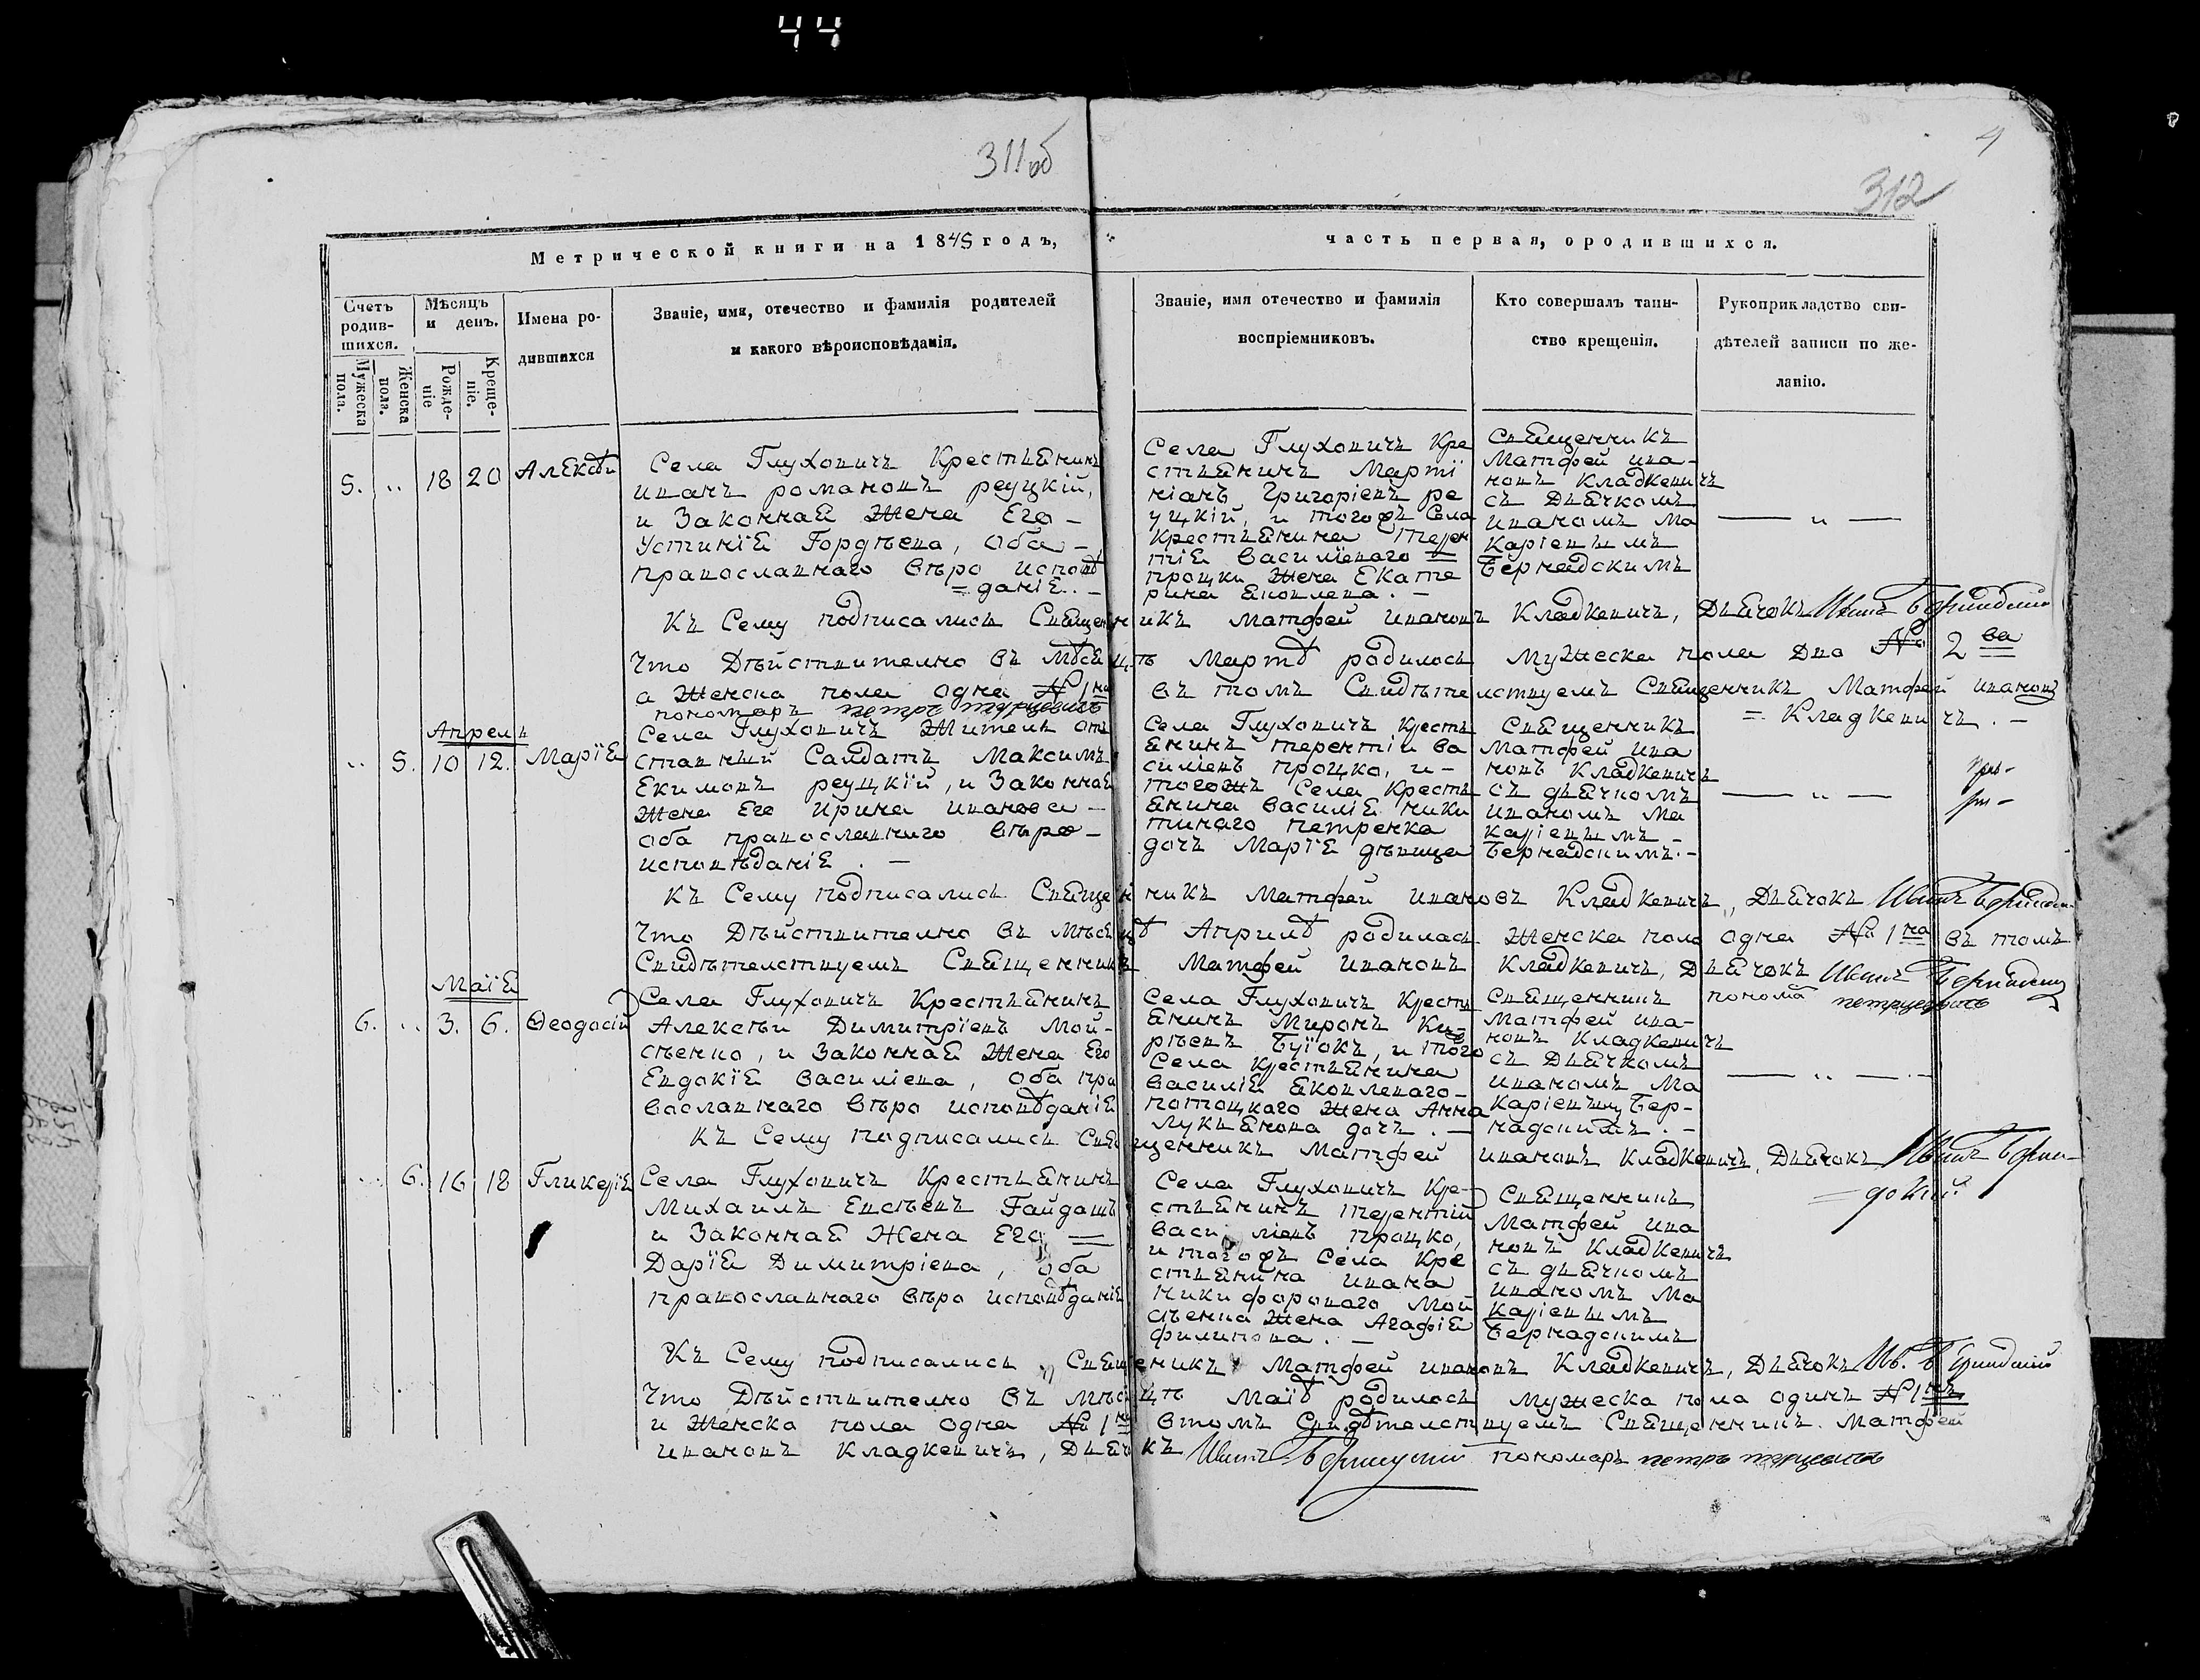 44
311об
4
312
Метрической книги на 1845 годъ,
часть первая, ородившихся.
Счетъ родив-
шихся.
Мѣсяцъ
и день.
Имена ро-
дившихся
Званіе, имя, отечество и фамилія родителей
и какого вѣроисповѣданія.
Званіе, имя отечество и фамилія
воспріемниковъ.
Кто совершалъ таин-
ство крещенія.
Рукоприкладство сви-
дѣтелей записи по же-
ланію.
Мужеска пола.
Женска пола.
Рожде-
ніе
Креще-
ніе.
5. .. 18 20 Алексѣй
Села Глуховичъ Крестьянинъ
иванъ романовъ реуцкій,
и Законная Жена Его -
Устинія Гордѣева, Оба -
православнаго вѣро исповѣ
=данія. -
Села Глуховичъ Кре
стьянинъ Марти
ніанъ Григоріевъ ре
уцкій, и тогожъ Села
Крестьянина Терен
тія Василіеваго =
процки Жена Екате
рина яковлева. -
Священникъ
Матфей ива-
новъ Кладкевичъ
съ Дьячкомъ
иваномъ Ма
каріевымъ
Бернадскимъ
— " —
Къ Сему подписались Священникъ Матфей ивановъ Кладкевичъ, Дьячокъ Иванъ Бернадскій
Что Дѣйствително въ Мѣсяцѣ Мартѣ родилось Мужеска пола два № 2 ва
а Женска пола одна № 1 на въ томъ Свидѣтелствуемъ Священникъ Матфей ивановъ
= Кладкевичъ. -
пономарь петръ
Апреля
.. 5. 10 12. Марія
Села Глуховичъ Житель от
ставный Салдатъ Максимъ
Екимовъ реуцкій, и Законная
Жена Его Ирина иванова -
оба православнаго вѣро -
исповѣданія. -
Села Глуховичъ Кресть
янинъ терентіи ва
силіевъ процко, и -
тогожъ Села Кресть
янина василія ники
тинаго петренка
дочъ Марія дѣвица
Священникъ
Матфей ива
новъ Кладкевичъ
съ дьячкомъ
иваномъ Ма
каріевымъ -
Бернадскимъ. -
— " —
Къ Сему подписались Священникъ Матфей ивановъ Кладкевичъ, Дьячокъ Иванъ Бернадскій
Что Дѣйствително въ Мѣсяцѣ Априлѣ родилась Женска пола одна № 1 на въ томъ
Свидѣтелствуемъ Священникъ Матфей ивановъ Кладкевичъ, Дьячокъ Иванъ Бернадскій
понома
Маія
6. .. 3. 6. Ѳеодосій
Села Глуховичъ Крестьянинъ
Алексѣй Димитріевъ Мой-
сѣенко, и Законная Жена Его
Евдокія василіева, оба пра
вославнаго вѣро исповѣданія
Села Глуховичъ Кресть
янинъ Миронъ Ки-
рѣевъ Буіокъ, и того
Села Крестьянина
василія яковлеваго -
потоцкаго Жена Анна
лукьянова дочъ. -
Священникъ
Матфей ива-
новъ Кладкевичъ
съ Дьячкомъ
иваномъ Ма
каріевымъ Бер-
надскимъ. -
— " — -
Къ Сему подписались Священникъ Матфей ивановъ Кладкевичъ, Дьячокъ Иванъ Берна-
=дскій.
.. 6. 16 18 Гликерія
Села Глуховичъ Крестьянинъ
Михаилъ Евсѣевъ Гайдашъ
и Законная Жена Его =
Дарія Димитріева, оба
православнаго вѣро исповѣданія
Села Глуховичъ Кре-
стьянинъ терентій
васи ліевъ процко,
и тогожъ села Кре
стьянина ивана
никифороваго Мой
сѣенка Жена Агафія
филипова. -
Священникъ
Матфей ива
новъ Кладкевичъ
съ дьячкомъ
иваномъ Ма
каріевымъ
Бернадскимъ
Къ Сему подписались Священикъ Матфей ивановъ Кладкевичъ, Дьячокъ Ив. Бернадскій
Что Дѣйствително въ Мѣсяцѣ Маіѣ родилось Мужеска пола одинъ № 1 нъ
и Женска пола одна № 1 на втомъ Свидѣтелствуемъ Священникъ Матфей
ивановъ Кладкевичъ, Дьячокъ Иванъ Бернадский пономарь петръ